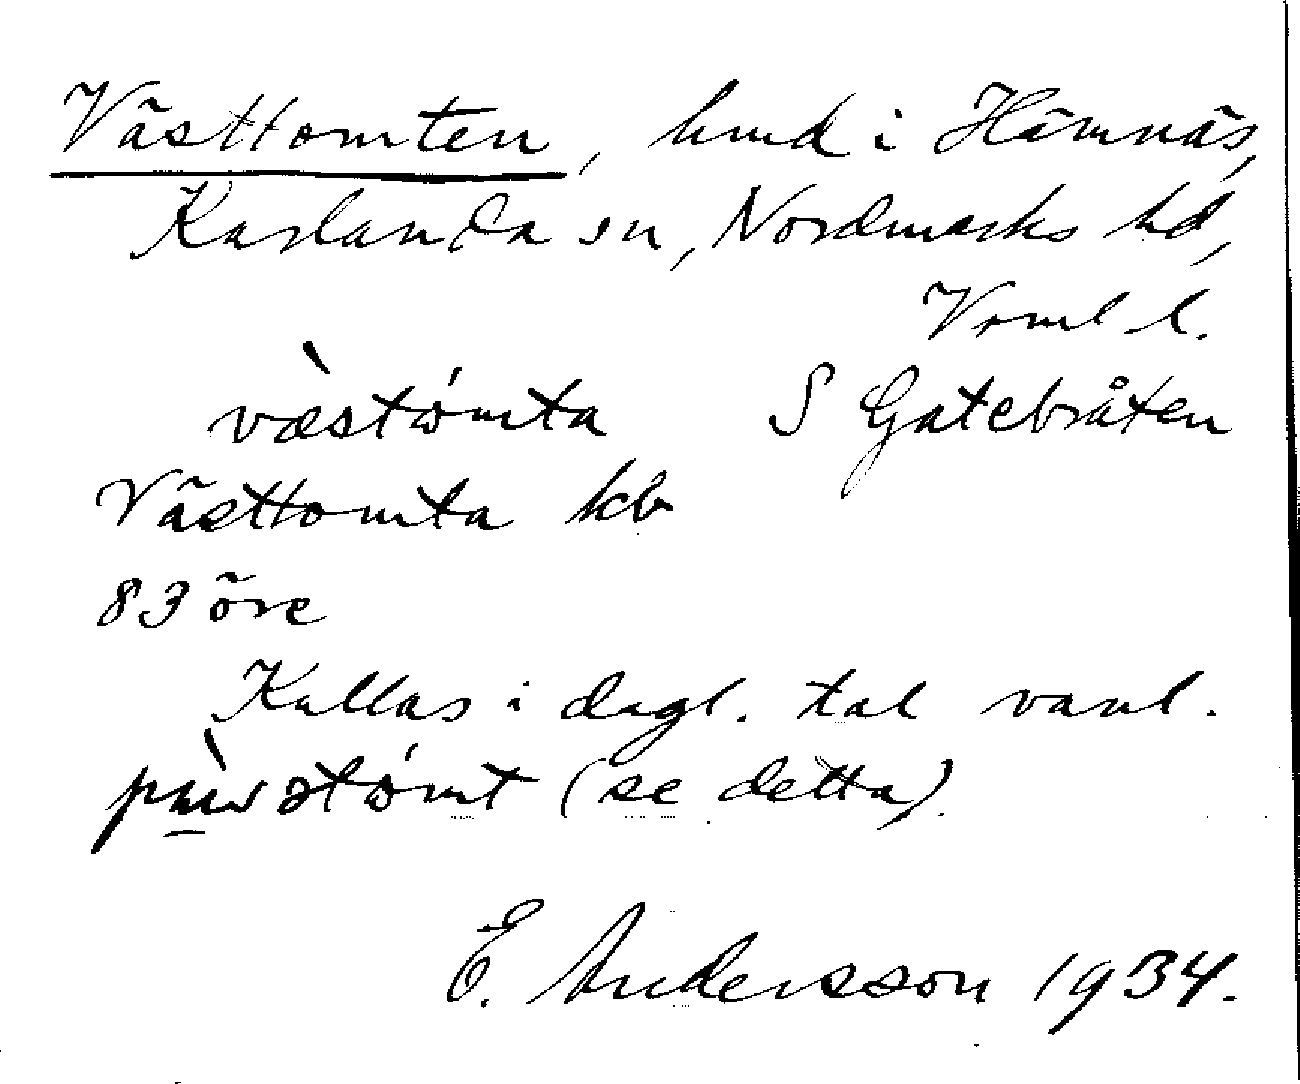 Västtomten, hmd i Hämnäs,
Karlanda sn, Nordmarks hd,
Vrml l.
væ̀stómta S Gatebråten
Västtomta kb
83 öre
Kallas i dagl. tal vanl.
(se detta).
E. Andersson 1934.